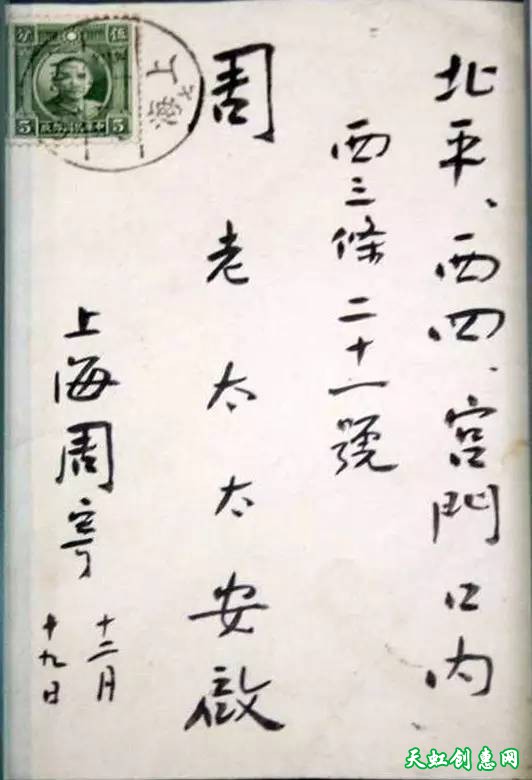 北平、西四、宫門口内
西三條二十一號
周老太太安啟
上海周寄
十二月
十九日
伍分
5 5
上海
天虹创意网